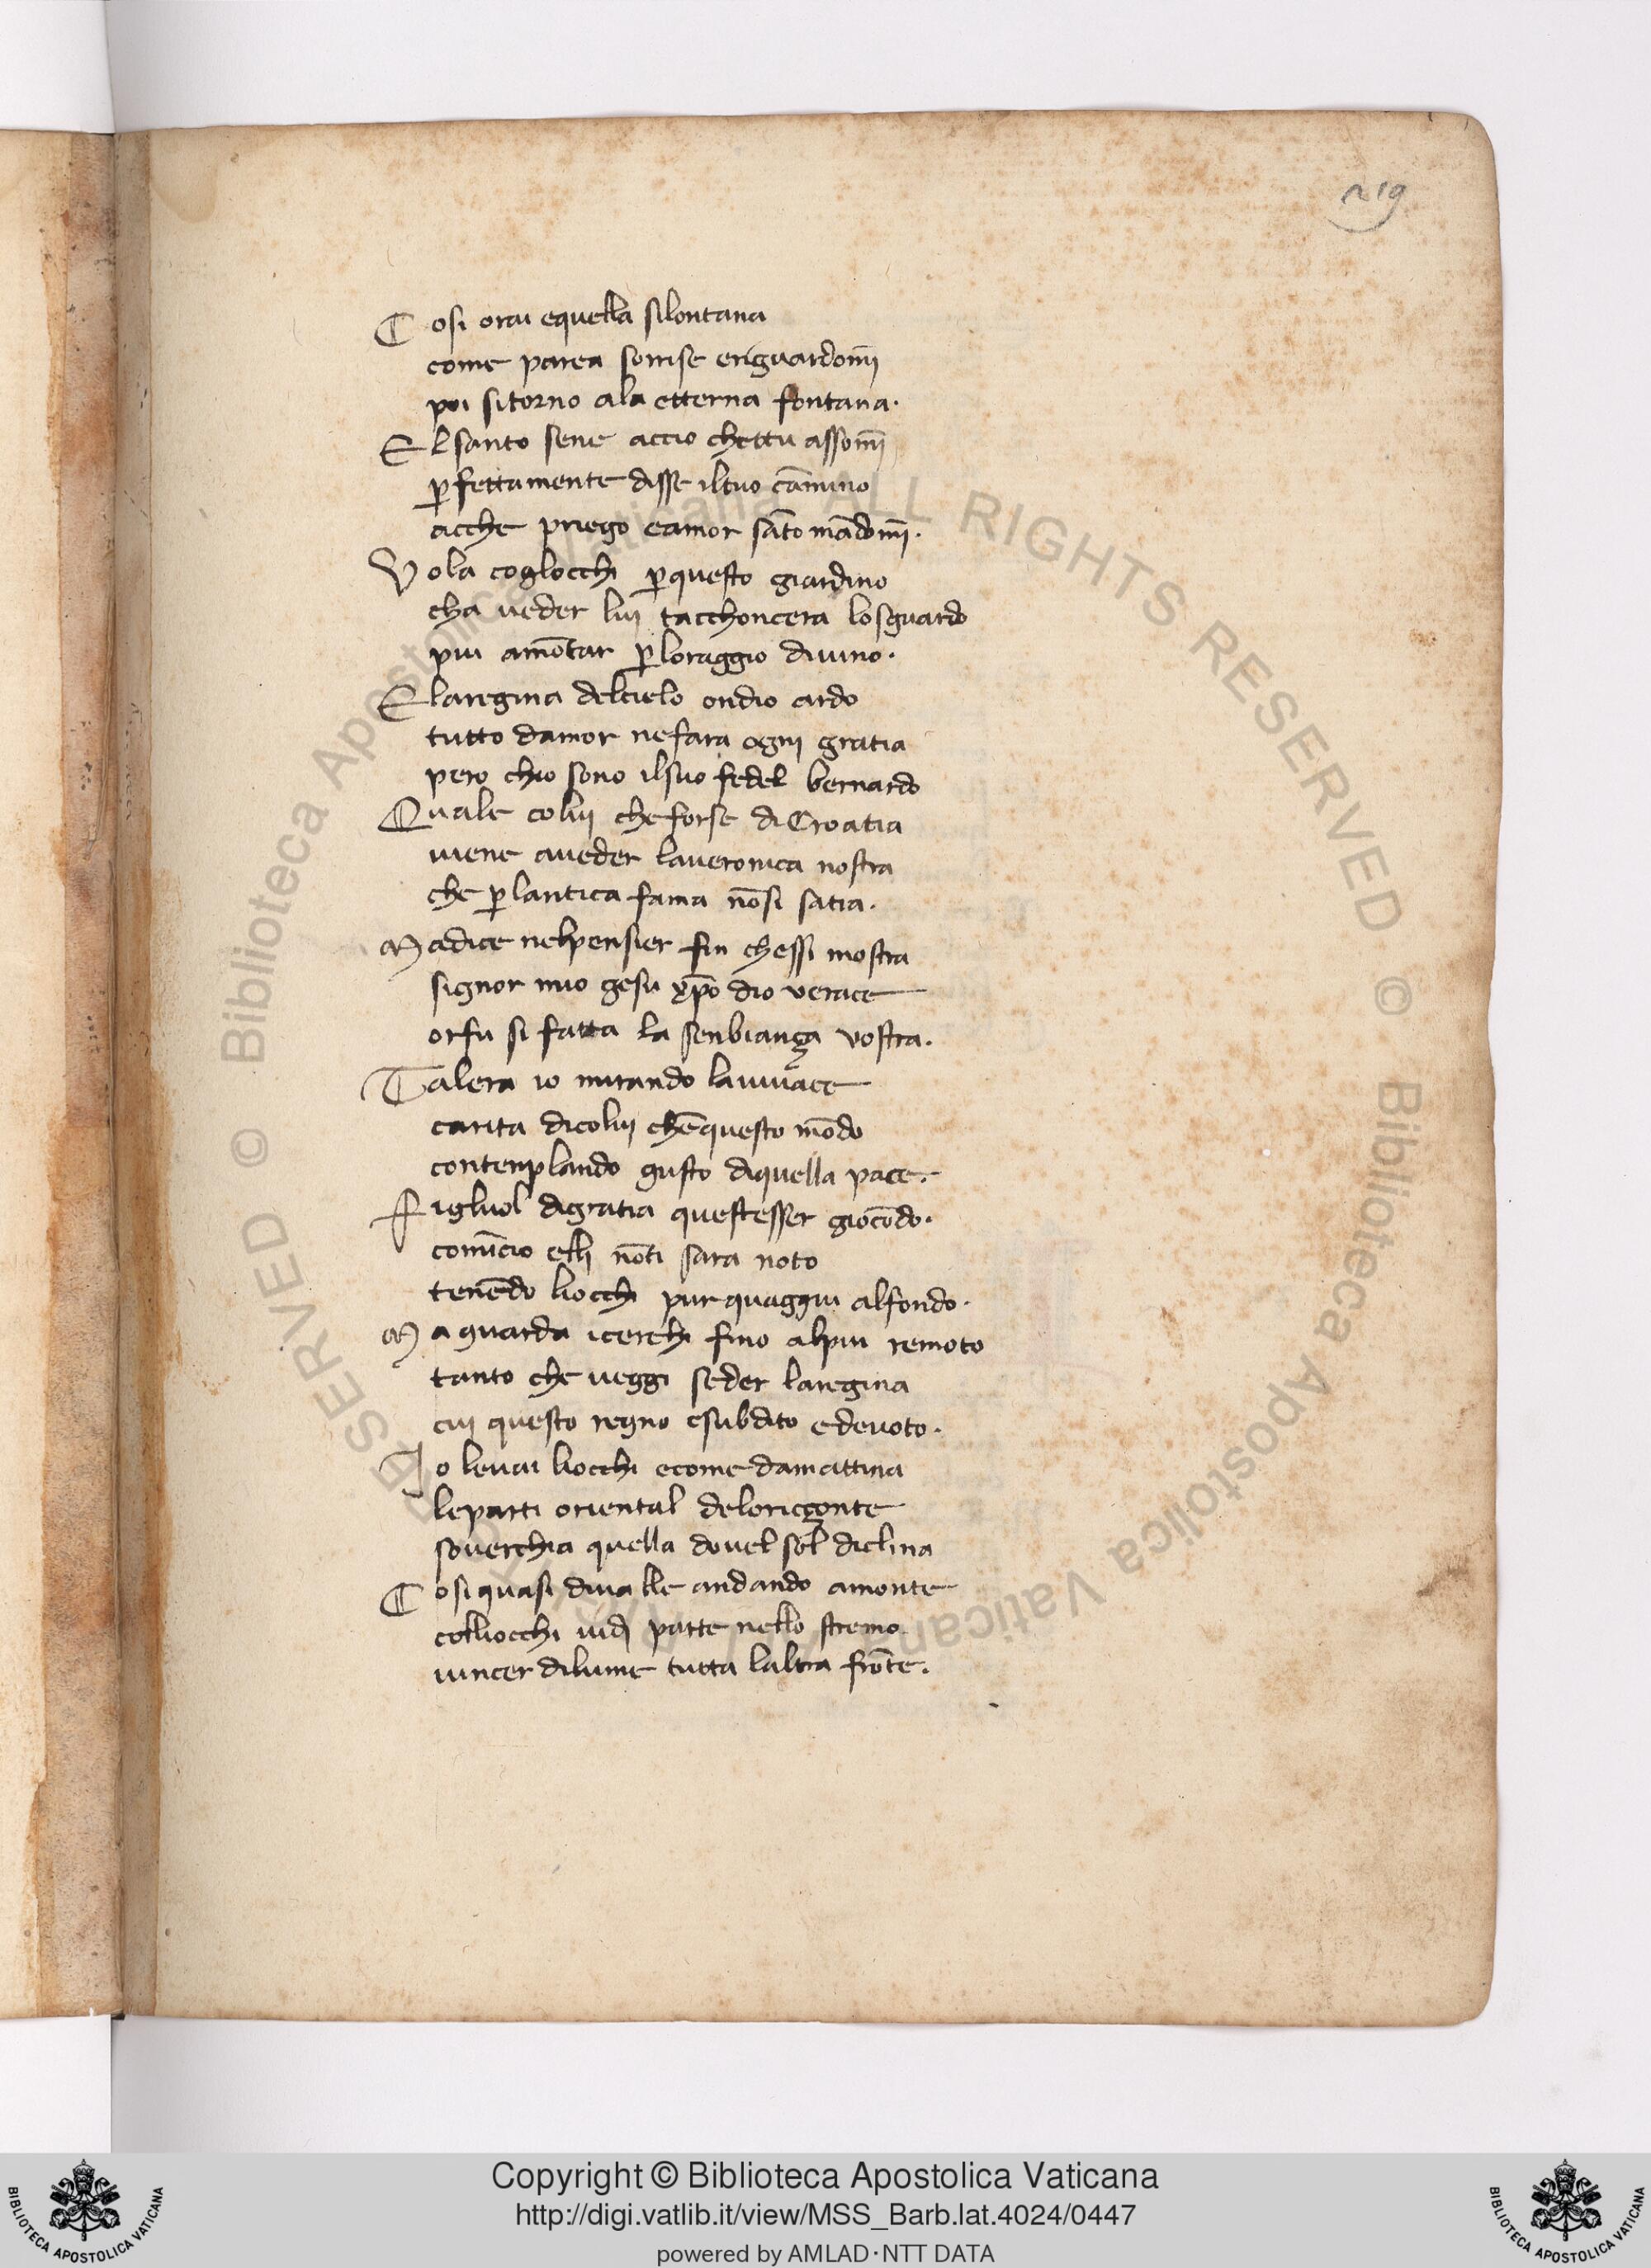 219
Cosi orai equella silontana
come parea sorrise eriguardom̄i
poi sitorno ala etterna fontana.
El santo sene accio chettu assom̄i
p̱fettamente disse iltuo cam̄ino
acche priego eamor sāto mādom̄i.
Vola coglocchi p̱questo giardino
cha ueder luj tacchoncera losguardo
piu amōtar p̱loraggio diuino.
E laregina delcielo ondio ardo
tutto damor nefara ognj gratia
pero chio sono ilsuo fedel bernardo
Quale coluj cheforse diCroatia
uiene aueder laueronica nostra
che p̱lantica fama nōsi satia.
Madice nelpensier fin chessi mostra
signor mio gesu xp̄o dio verace
orfu si fatta la senbiança vostra.
Talera io mirando lauiuace
carita dicoluj chēquesto mōdo
contenplando gusto diquella pace.
Figliuol digratia questesser giocōdo.
comīcio elli nōti sara noto
tenēdo liocchi pur quaggiu alfondo.
Ma guarda icerchi fino alpiu remoto
tanto che ueggi seder laregina
cuj questo regno esubdito edeuoto.
Io leuai liocchi ecome damattina
leparti oriental deloriççonte
souerchia quella douel sol diclina
Cosi quasi diualle andando amonte
colliocchi uidj parte nello stremo
uincer dilume tutta laltra frōte.
© Biblioteca Apostolica Vaticana ALL RIGHTS RESERVED © Biblioteca Apostolica Vaticana ALL RIGHTS RESERVED
Copyright © Biblioteca Apostolica Vaticana
http://digi.vatlib.it/view/MSS_Barb.lat.4024/0447
powered by AMLAD·NTT DATA
BIBLIOTECA APOSTOLICA VATICANA
BIBLIOTECA APOSTOLICA VATICANA